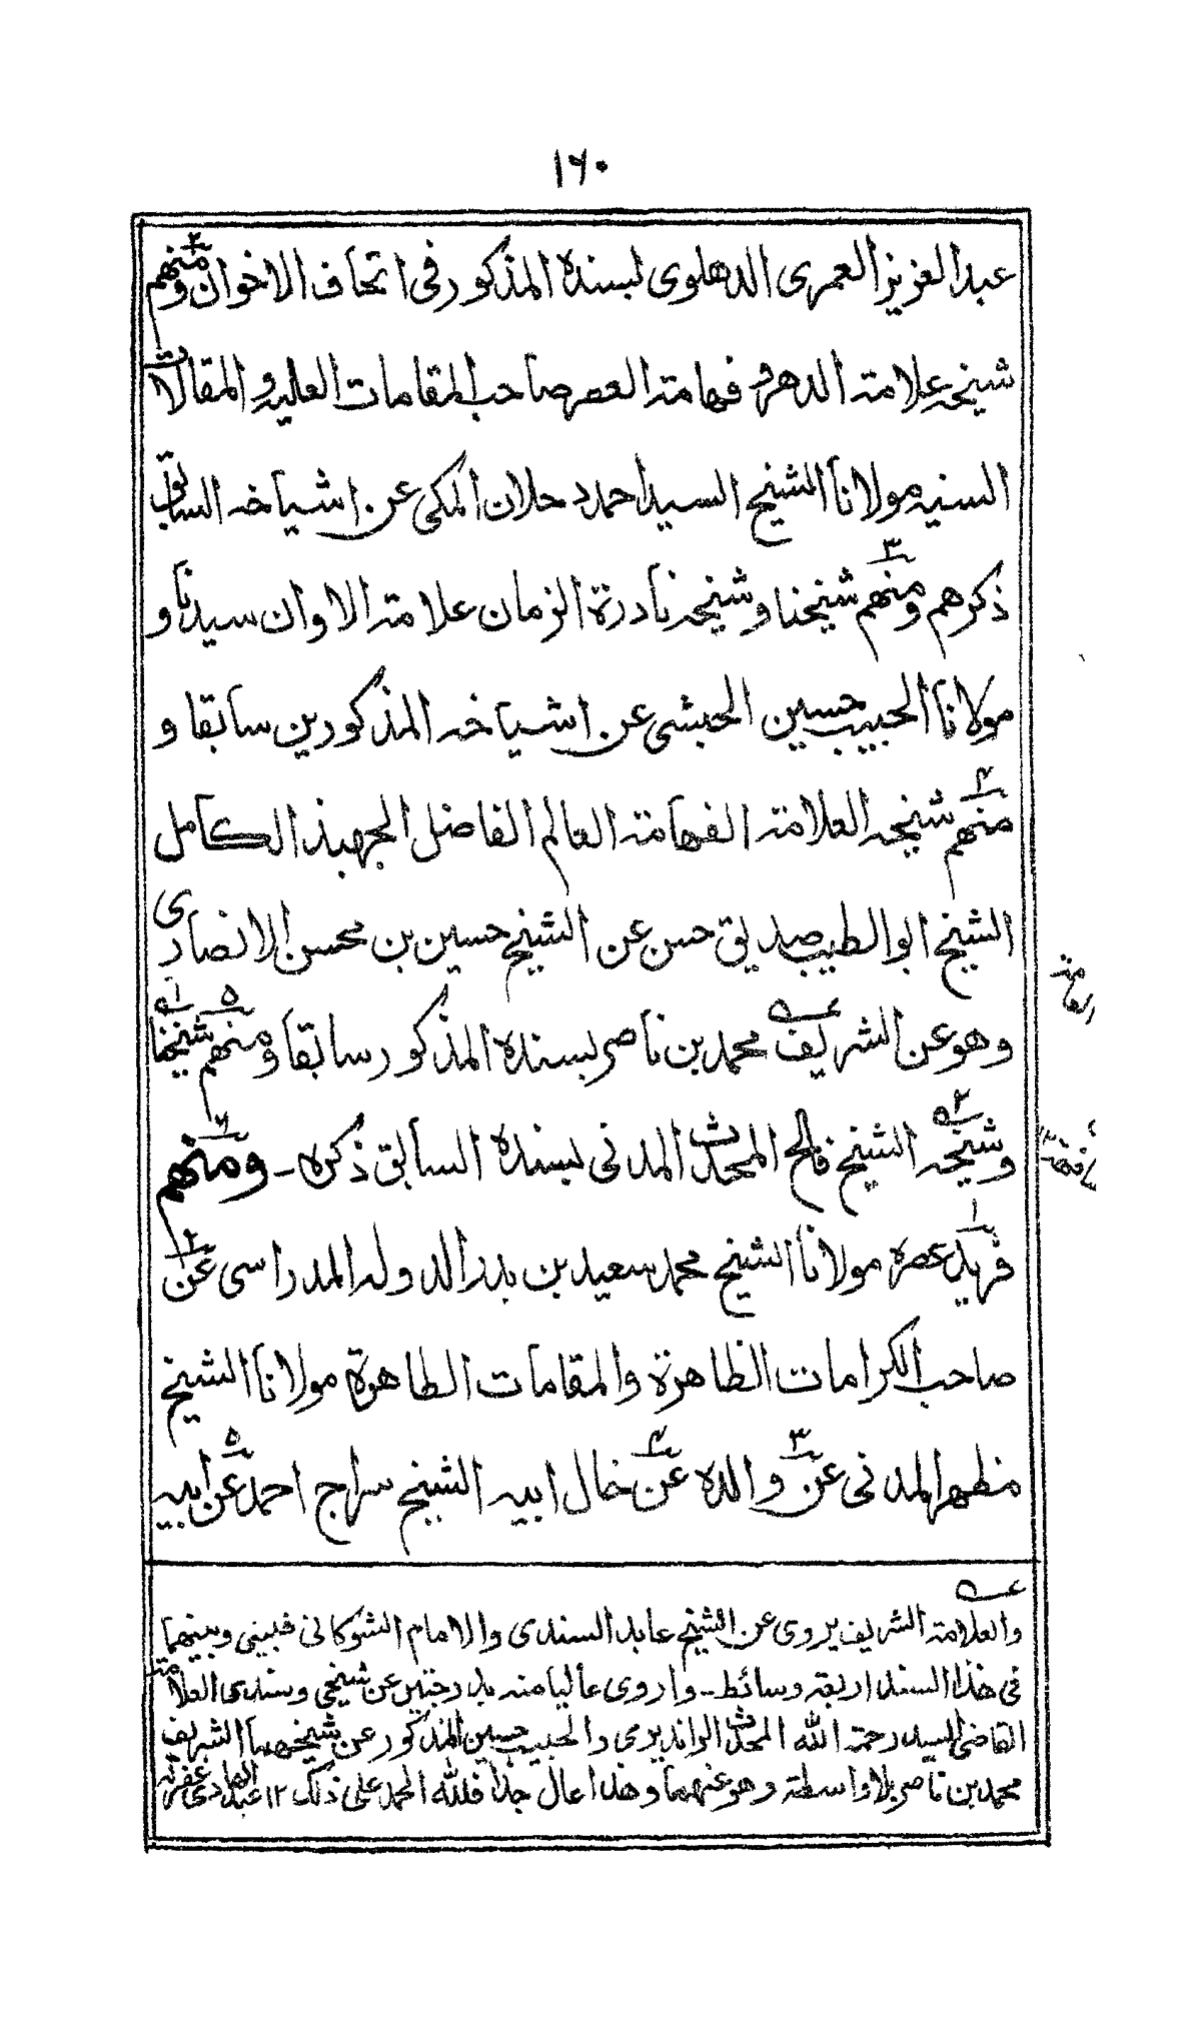 ١٦٠
عبد العزيز العمرى الدهلوى بسنده المذكور فى اتحاف الاخوان ومنهم٢
شيخه علامة الدهر وفهامة العصر صاحب المقامات العليه والمقالات
السنيه مولانا الشيخ السيد احمد دحلان المكى عن اشياخه السابق
ذكرهم ومنهم٣ شيخنا وشيخه نادرة الزمان علامة الاوان سيدنا و
مولانا الحبيب حسين الحبشى عن اشياخه المذكورين سابقا و
منهم٤ شيخه العلامة الفهامة العالم الفاضل الجهبذ الكامل
الشيخ ابو الطيب صديق حسن عن الشيخ حسين بن محسن الانصارى
وهو عن الشريف محمد بن ناصر بسنده المذكور سابقا ومنهم٥ شيخنا
وشيخه الشيخ فالح المحدث المدنى بسنده السابق ذكره - ومنهم٦
فريد١ عصره مولانا الشيخ محمد سعيد بن بدر الدوله المدراسى عن٢
صاحب الكرامات الظاهرة والمقامات الطاهرة مولانا الشيخ
مظهر المدنى عن٣ والده عن٤ خال ابيه الشيخ سراج احمد عن٥ ابيه
والعلامة الشريف يروى عن الشيخ عابد السندى والامام الشوكانى فبينى وبينهما
فى هذا السند اربعة وسائط - واروى عاليا منه بدرجتين عن شيخى وسندى العلامة
القاضى السيد رحمة الله المحدث الرانديرى والحبيب حسين المذكور عن شيخهما الشريف
محمد بن ناصر بلا واسطة وهو عنهما وهذا عال جدا فلله الحمد على ذلك ١٢ عبد الهادى غفر له